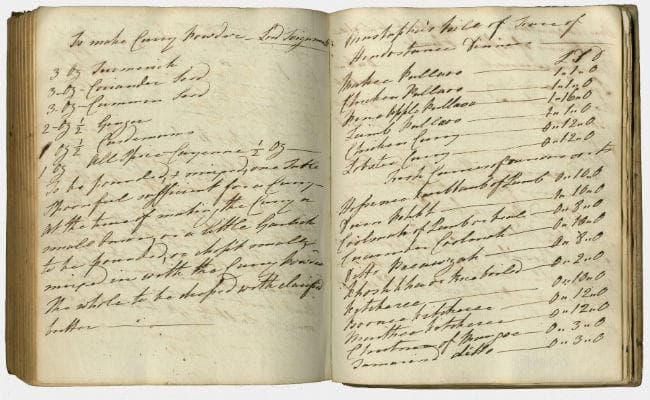 To make Curry Powder - Lord Teignmouth
3 Oz Turmerick
3 Oz Coriander Seed
3 Oz Cummin Seed
2 Oz ½ Ginger
1 Oz ½ Cardemoms
1 Oz All Spice Cayenne ½ Oz
To be pounded & mixed, one Table
Spoonful sufficient for a Curry -
at the time of making the Curry a
small or a little Garlick
to be pounded, or chopt small &
mixed in with the Curry Powder
The whole to be with clarified
butter
Bill of Fare of
Hindostanee
£ S D
Makee Pullaoo 1 " 1 " 0
Chicken Pullaoo 1 " 1 " 0
Pine Apple Pullaoo 1 " 16 " 0
Lamb Pullaoo 1 " 1 " 0
Chicken Curry 0 " 12 " 0
Lobster Curry 0 " 12 " 0
of Lamb 0 " 10 " 0
0 " 10 " 0
Coolmah of Lamb or Veal 0 " 8 " 0
Cucumber Coolmah 0 " 8 " 0
0 " 8 " 0
Rice boild 0 " 2 " 0
Kitcheree 0 " 10 " 0
Kitcheree 0 " 12 " 0
Kitcheree 0 " 12 " 0
of Mangoe 0 " 3 " 0
Tamarind ditto 0 " 3 " 0